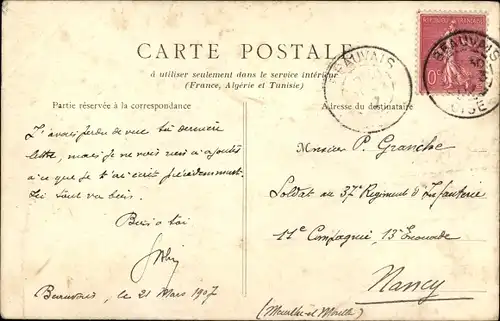 CARTE POSTALE
à utiliser seulement dans le service intérieur
(France, Algérie et Tunisie)
Partie réservée à la correspondance
J'avais perdu de vue ta dernière
lettre, mais je ne vois rien à ajouter
à ce que je t'ai écrit précédemment.
Ici tout va bien.
Bien à toi
Beauvais, le 21 Mars 1907
Adresse du destinataire
Monsieur P. Granche
Soldat au 37e Régiment d'Infanterie
11e Compagnie, 13e Escouade
Nancy
(Meurthe et Moselle)
REPUBLIQUE FRANÇAISE
BEAUVAIS
BEAUVAIS
OISE